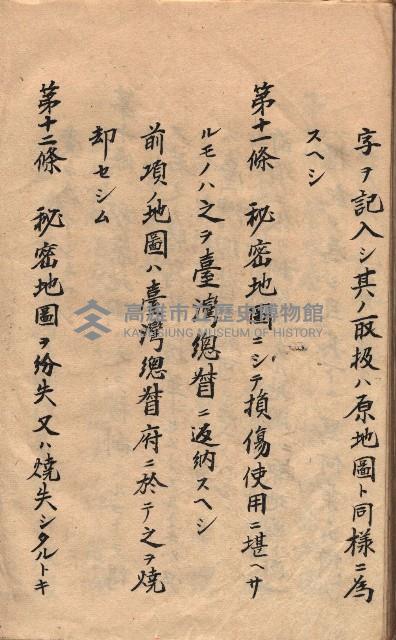 字ヲ記入シ其ノ取扱ハ原地圖ト同樣ニ為
スヘシ
第十一條 秘密地圖ニシテ損傷使用ニ堪ヘサ
ルモノハ之ヲ臺灣總督ニ返納スヘシ
前項ノ地圖ハ臺灣總督府ニ於テ之ヲ燒
却セシム
第十二條 秘密地圖ヲ紛失又ハ燒失シタルトキ
高雄市立歷史博物館
KAOHSIUNG MUSEUM OF HISTORY